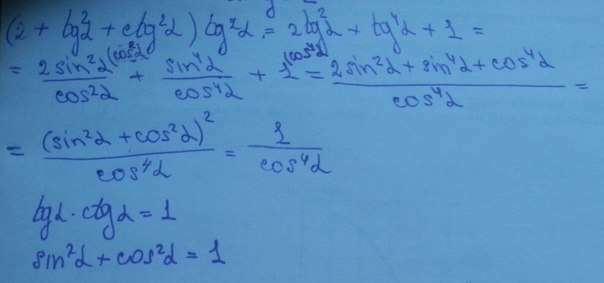 (2 + tg²α + ctg²α) tg²α = 2tg²α + tg⁴α + 1 =
= 2sin²α(cos²α / cos²α + sin⁴α / cos⁴α + 1(cos⁴α = 2sin²α + sin⁴α + cos⁴α / cos⁴α =
= (sin²α + cos²α)² / cos⁴α = 1 / cos⁴α
tgα · ctgα = 1
sin²α + cos²α = 1